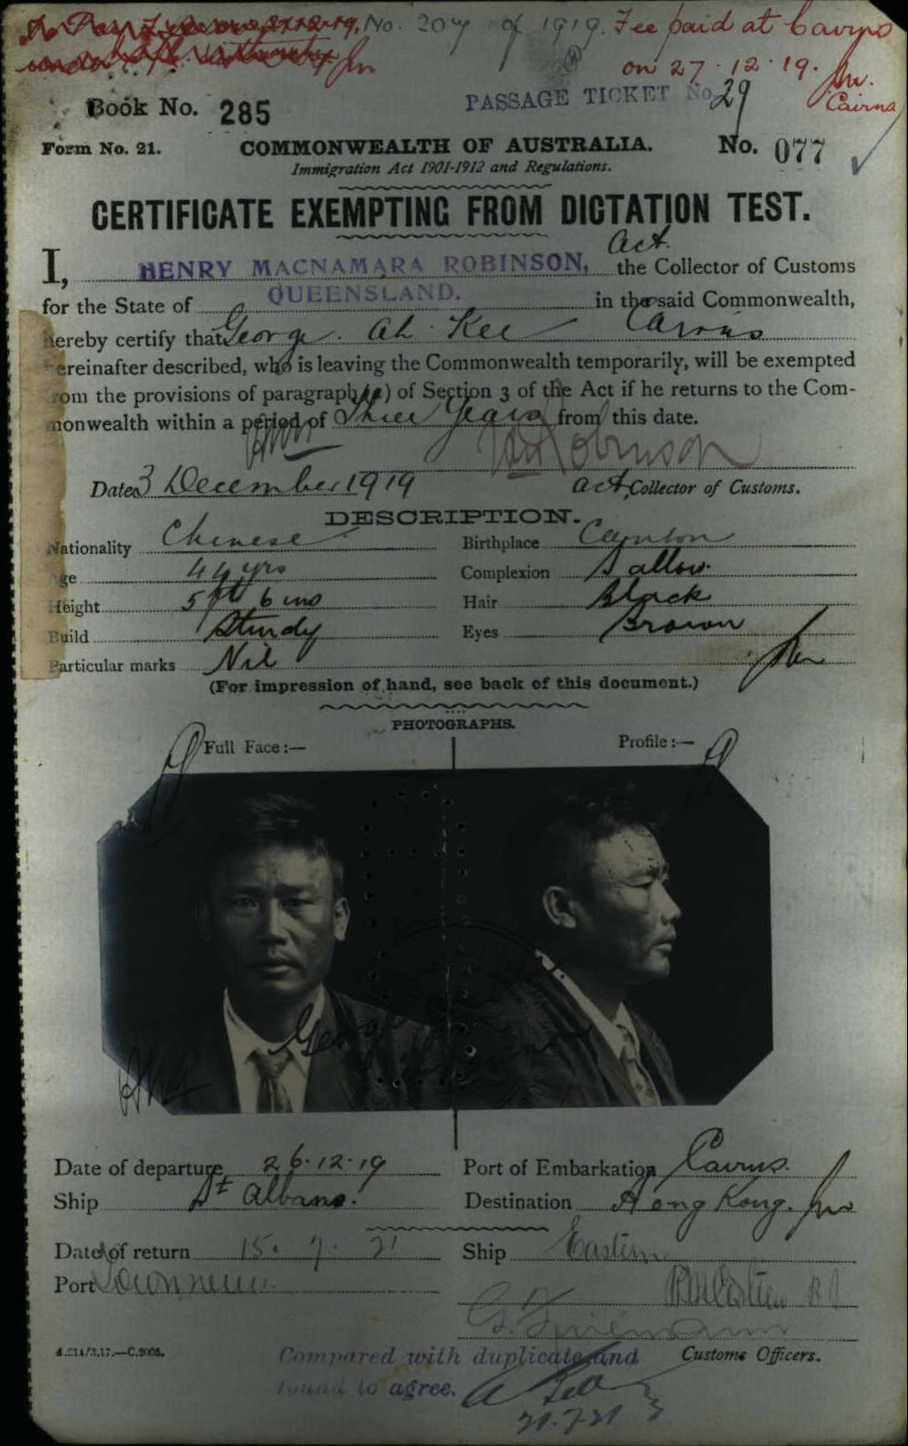 No. 207 of 1919. Fee paid at Cairns
on 27.12.19.
Cairns
PASSAGE TICKET No. 29
Book No. 285
Form No. 21. COMMONWEALTH OF AUSTRALIA. No. 077
Immigration Act 1901-1912 and Regulations.
CERTIFICATE EXEMPTING FROM DICTATION TEST.
Act.
I, HENRY MACNAMARA ROBINSON, the Collector of Customs
for the State of QUEENSLAND. in the said Commonwealth,
hereby certify that George Ah Kee Cairns
hereinafter described, who is leaving the Commonwealth temporarily, will be exempted
from the provisions of paragraph (a) of Section 3 of the Act if he returns to the Com-
monwealth within a period of Three Years from this date.
HMRobinson
Date 3 December 1919 Act. Collector of Customs.
DESCRIPTION.
Nationality Chinese Birthplace Canton
Age 44 yrs Complexion Sallow
Height 5 ft 6 ins Hair Black
Build Sturdy Eyes Brown
Particular marks Nil
(For impression of hand, see back of this document.)
PHOTOGRAPHS.
Full Face :— Profile :—
George
Date of departure 26.12.19 Port of Embarkation Cairns.
Ship St Albans. Destination Hong Kong.
Date of return 15.7.21 Ship Eastern
Port Townsville
Customs Officers.
Compared with duplicate and
found to agree.
21.7.21